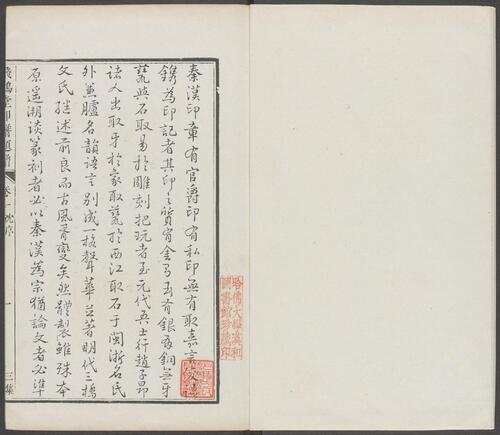 秦漢印章有官爵印有私印無有取嘉言
鐫為印記者其印之質有金有玉有銀有銅無牙
甃與石取易於雕刻把玩者至元代吾士行趙子昂
諸人出取牙於象取甃於西江取石于閩浙名氏
外兼臚名韻語言別成一格聲華並著明代三橋
文氏繼述前良而古風胥變矣然體製雖殊本
原遥溯談篆刻者必以秦漢為宗猶論文者必準
堂印譜
卷一 沈序
一
三集
哈佛大學漢和
圖書館珍藏印